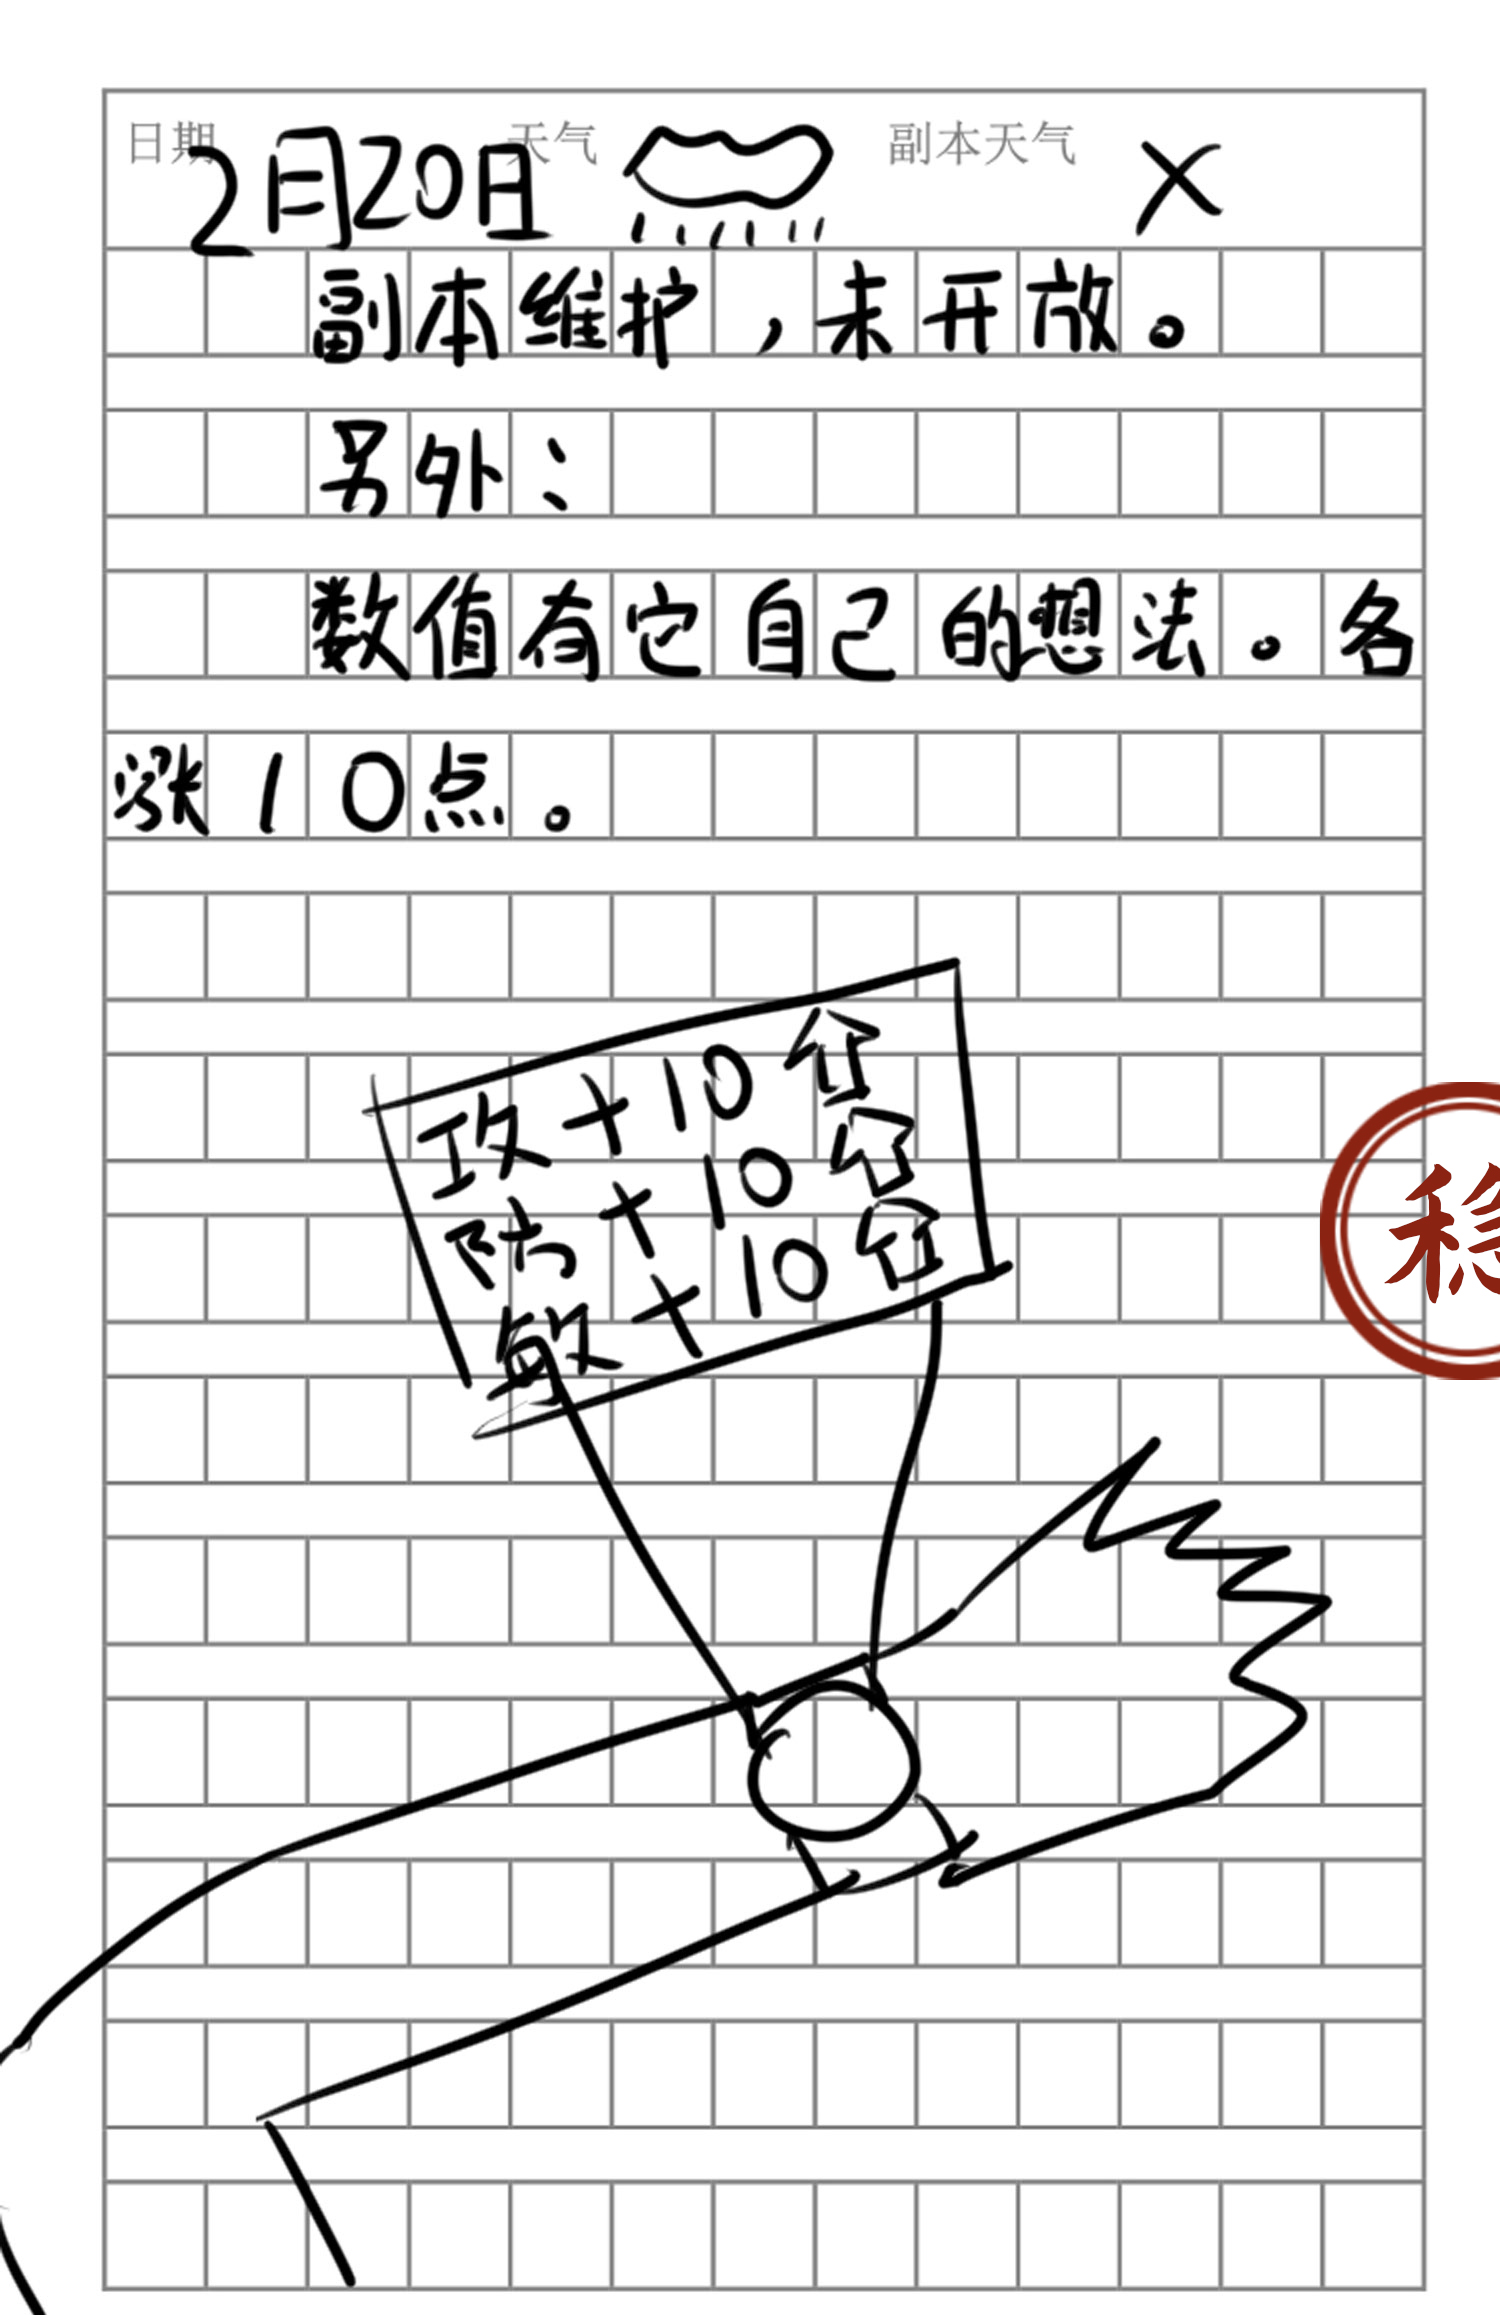 日期 2月20日 天气 副本天气 X
副本维护，未开放。
另外：
数值有它自己的想法。各
涨10点。
攻+10分
防+10分
敏+10分
稳